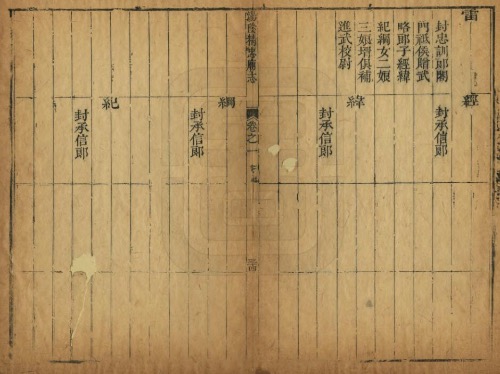 雷
封忠訓郎閣
門祗侯贈武
略郎子經緯
紀綱女二娘
三娘壻俱補
進武校尉
經
封承信郎
緯
封承信郎
卷之一
綱
封承信郎
紀
封承信郎